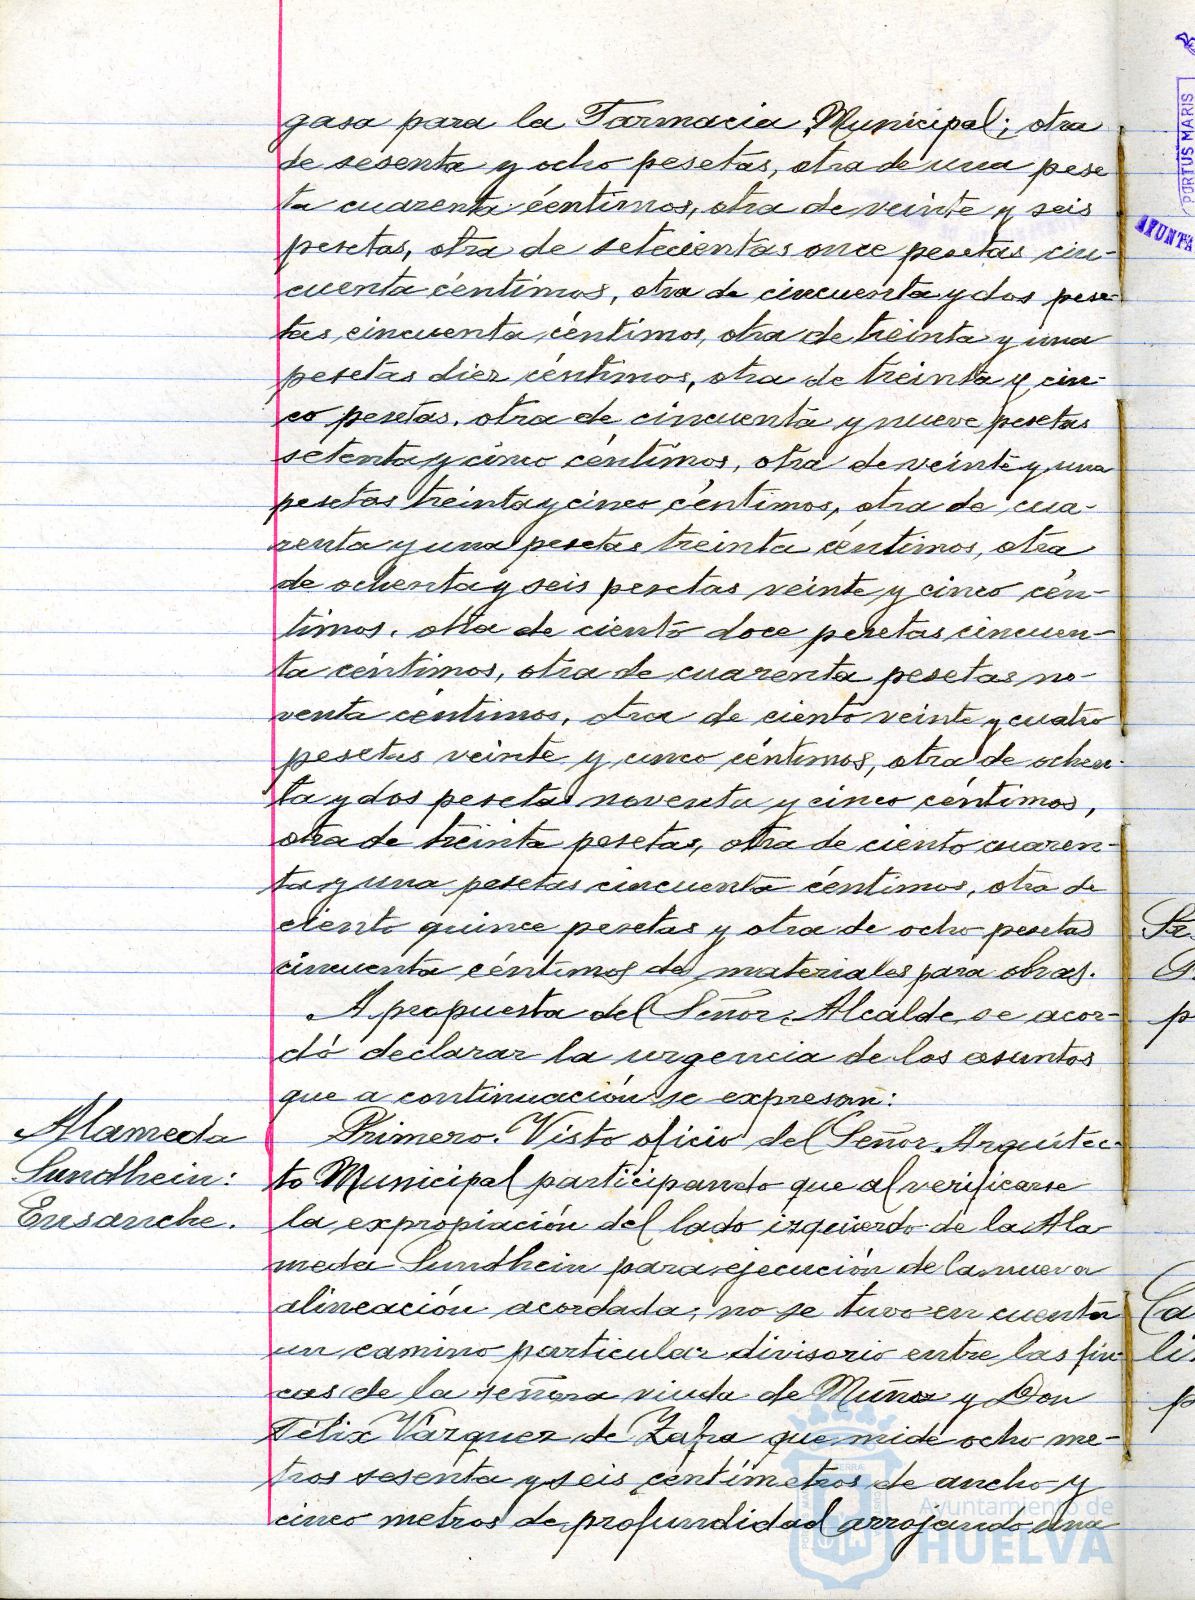 gasa para la Farmacia Municipal; otra
de sesenta y ocho pesetas, otra de una pese
ta cuarenta céntimos, otra de veinte y seis
pesetas, otra de setecientas once pesetas cin-
cuenta céntimos, otra de cincuenta y dos pese-
tas cincuenta céntimos, otra de treinta y una
pesetas diez céntimos, otra de treinta y cin-
co pesetas, otra de cincuenta y nueve pesetas
setenta y cinco céntimos, otra de veinte y una
pesetas treinta y cinco céntimos, otra de cua-
renta y una pesetas treinta céntimos, otra
de ochenta y seis pesetas veinte y cinco cén-
timos, otra de ciento doce pesetas cincuen-
ta céntimos, otra de cuarenta pesetas no-
venta céntimos, otra de ciento veinte y cuatro
pesetas veinte y cinco céntimos, otra de ochen-
ta y dos pesetas noventa y cinco céntimos,
otra de treinta pesetas, otra de ciento cuaren-
ta y una pesetas cincuenta céntimos, otra de
ciento quince pesetas y otra de ocho pesetas
cincuenta céntimos de materiales para obras.
A propuesta del Señor Alcalde se acor-
dó declarar la urgencia de los asuntos
que a continuación se expresan:
Alameda
Sundhein:
Ensanche.
Primero. Visto oficio del Señor Arquitec-
to Municipal participando que al verificarse
la expropiación del lado izquierdo de la Ala
meda Sundhein para ejecución de la nueva
alineación acordada, no se tuvo en cuenta
un camino particular divisorio entre las fin
cas de la señora viuda de Muñoz y Don
Félix Vázquez de Zafra que mide ocho me-
tros sesenta y seis centímetros de ancho y
cinco metros de profundidad arrojando una
PORTUS MARIS
AYUNTA
Ayuntamiento de
HUELVA